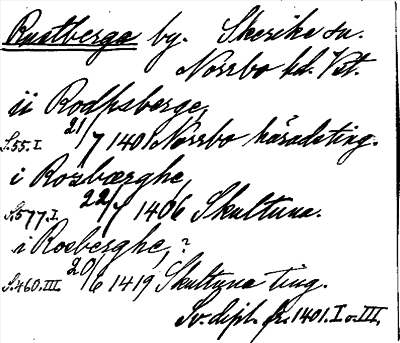 Rustberga by. Skerike sn.
Norrbo hd. Vst.
ii Rodhsberge,
S.55.I. 21/7 1401 Norrbo häradsting.
i Rozbærghe,
S.577.I. 22/7 1406 Skultuna.
i Roeberghe,?
S.460.III. 20/6 1419 Skultuna ting.
Sv. dipl. fr. 1401. I o. III.